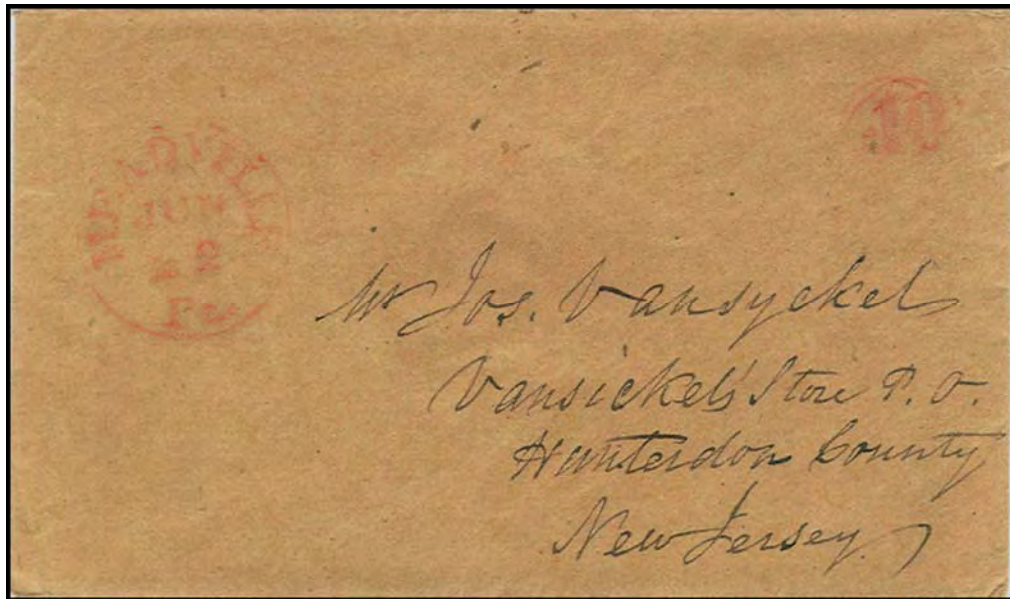 10
MEADVILLE
JUN
Pa
Mr Jos. Vansyckel
Vansickel's Store P. O.
Hunterdon County
New Jersey